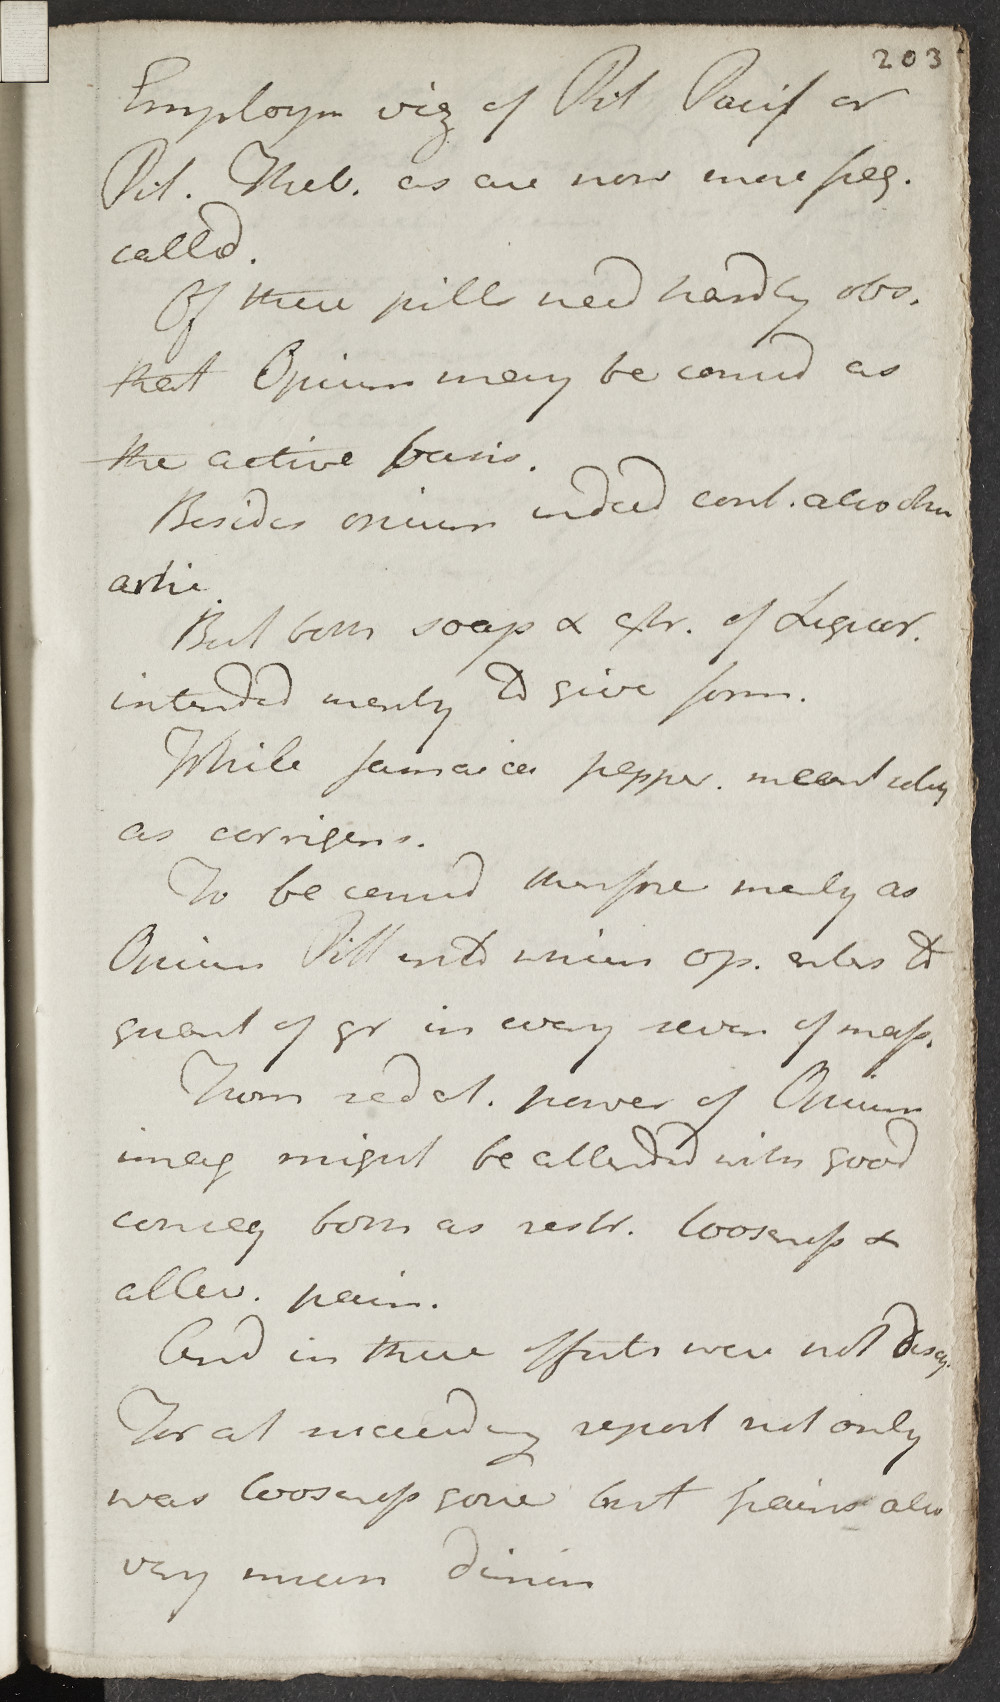 203
Employm viz of Pil Pacif or
Pil. Theb. as are now more freq.
calld.
Of these pills need hardly obs.
that Opium may be consid as
the active basis.
Besides opium indeed cont. also other
artic.
But both soap & extr. of Liquor.
intended merely to give form.
While Jamaica pepper. meant only
as corrigens.
To be consid therefore merely as
Opium Pill into which op. enters to
quant of gr in every seven of mass.
From sedat. power of Opium
imag might be attended with good
conseq both as restr. looseness &
allev. pain.
And in these effects were not disap.
For at succeeding report not only
was looseness gone but pains also
very much dimin